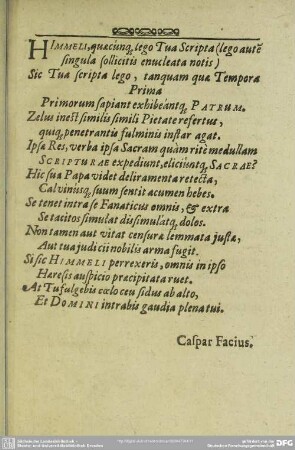 HIMMELI, quæcunq, lego Tua Scripta (lego autē
singula sollicitis enucleata notis)
Sic Tua scripta lego, tanquam quæ Tempora
Prima
Primorum sapiant exhibeántq, PATRUM.
Zelus inest similis simili Pietate refertus,
quiq, penetrantis fulminis instar agat.
Ipsa Res, verba ipsa Sacram quàm ritè medullam
SCRIPTURAE expediunt, eliciúntq, SACRAE?
Hic sua Papa videt deliramenta retecta,
Calvinúsq, suum sentit acumen hebes.
Se tenet intra se Fanaticus omnis, & extra
Se tacitos simulat dissimulatq, dolos.
Non tamen aut vitat censuræ lemmata justæ,
Aut tua judicii nobilis arma fugit.
Si sic HIMMELI perrexeris, omnis in ipso
Hæresis auspicio præcipitata ruet.
At Tu fulgebis cœlo ceu sidus ab alto,
Et DOMINI intrabis gaudia plena tui.
Caspar Facius.
DFG